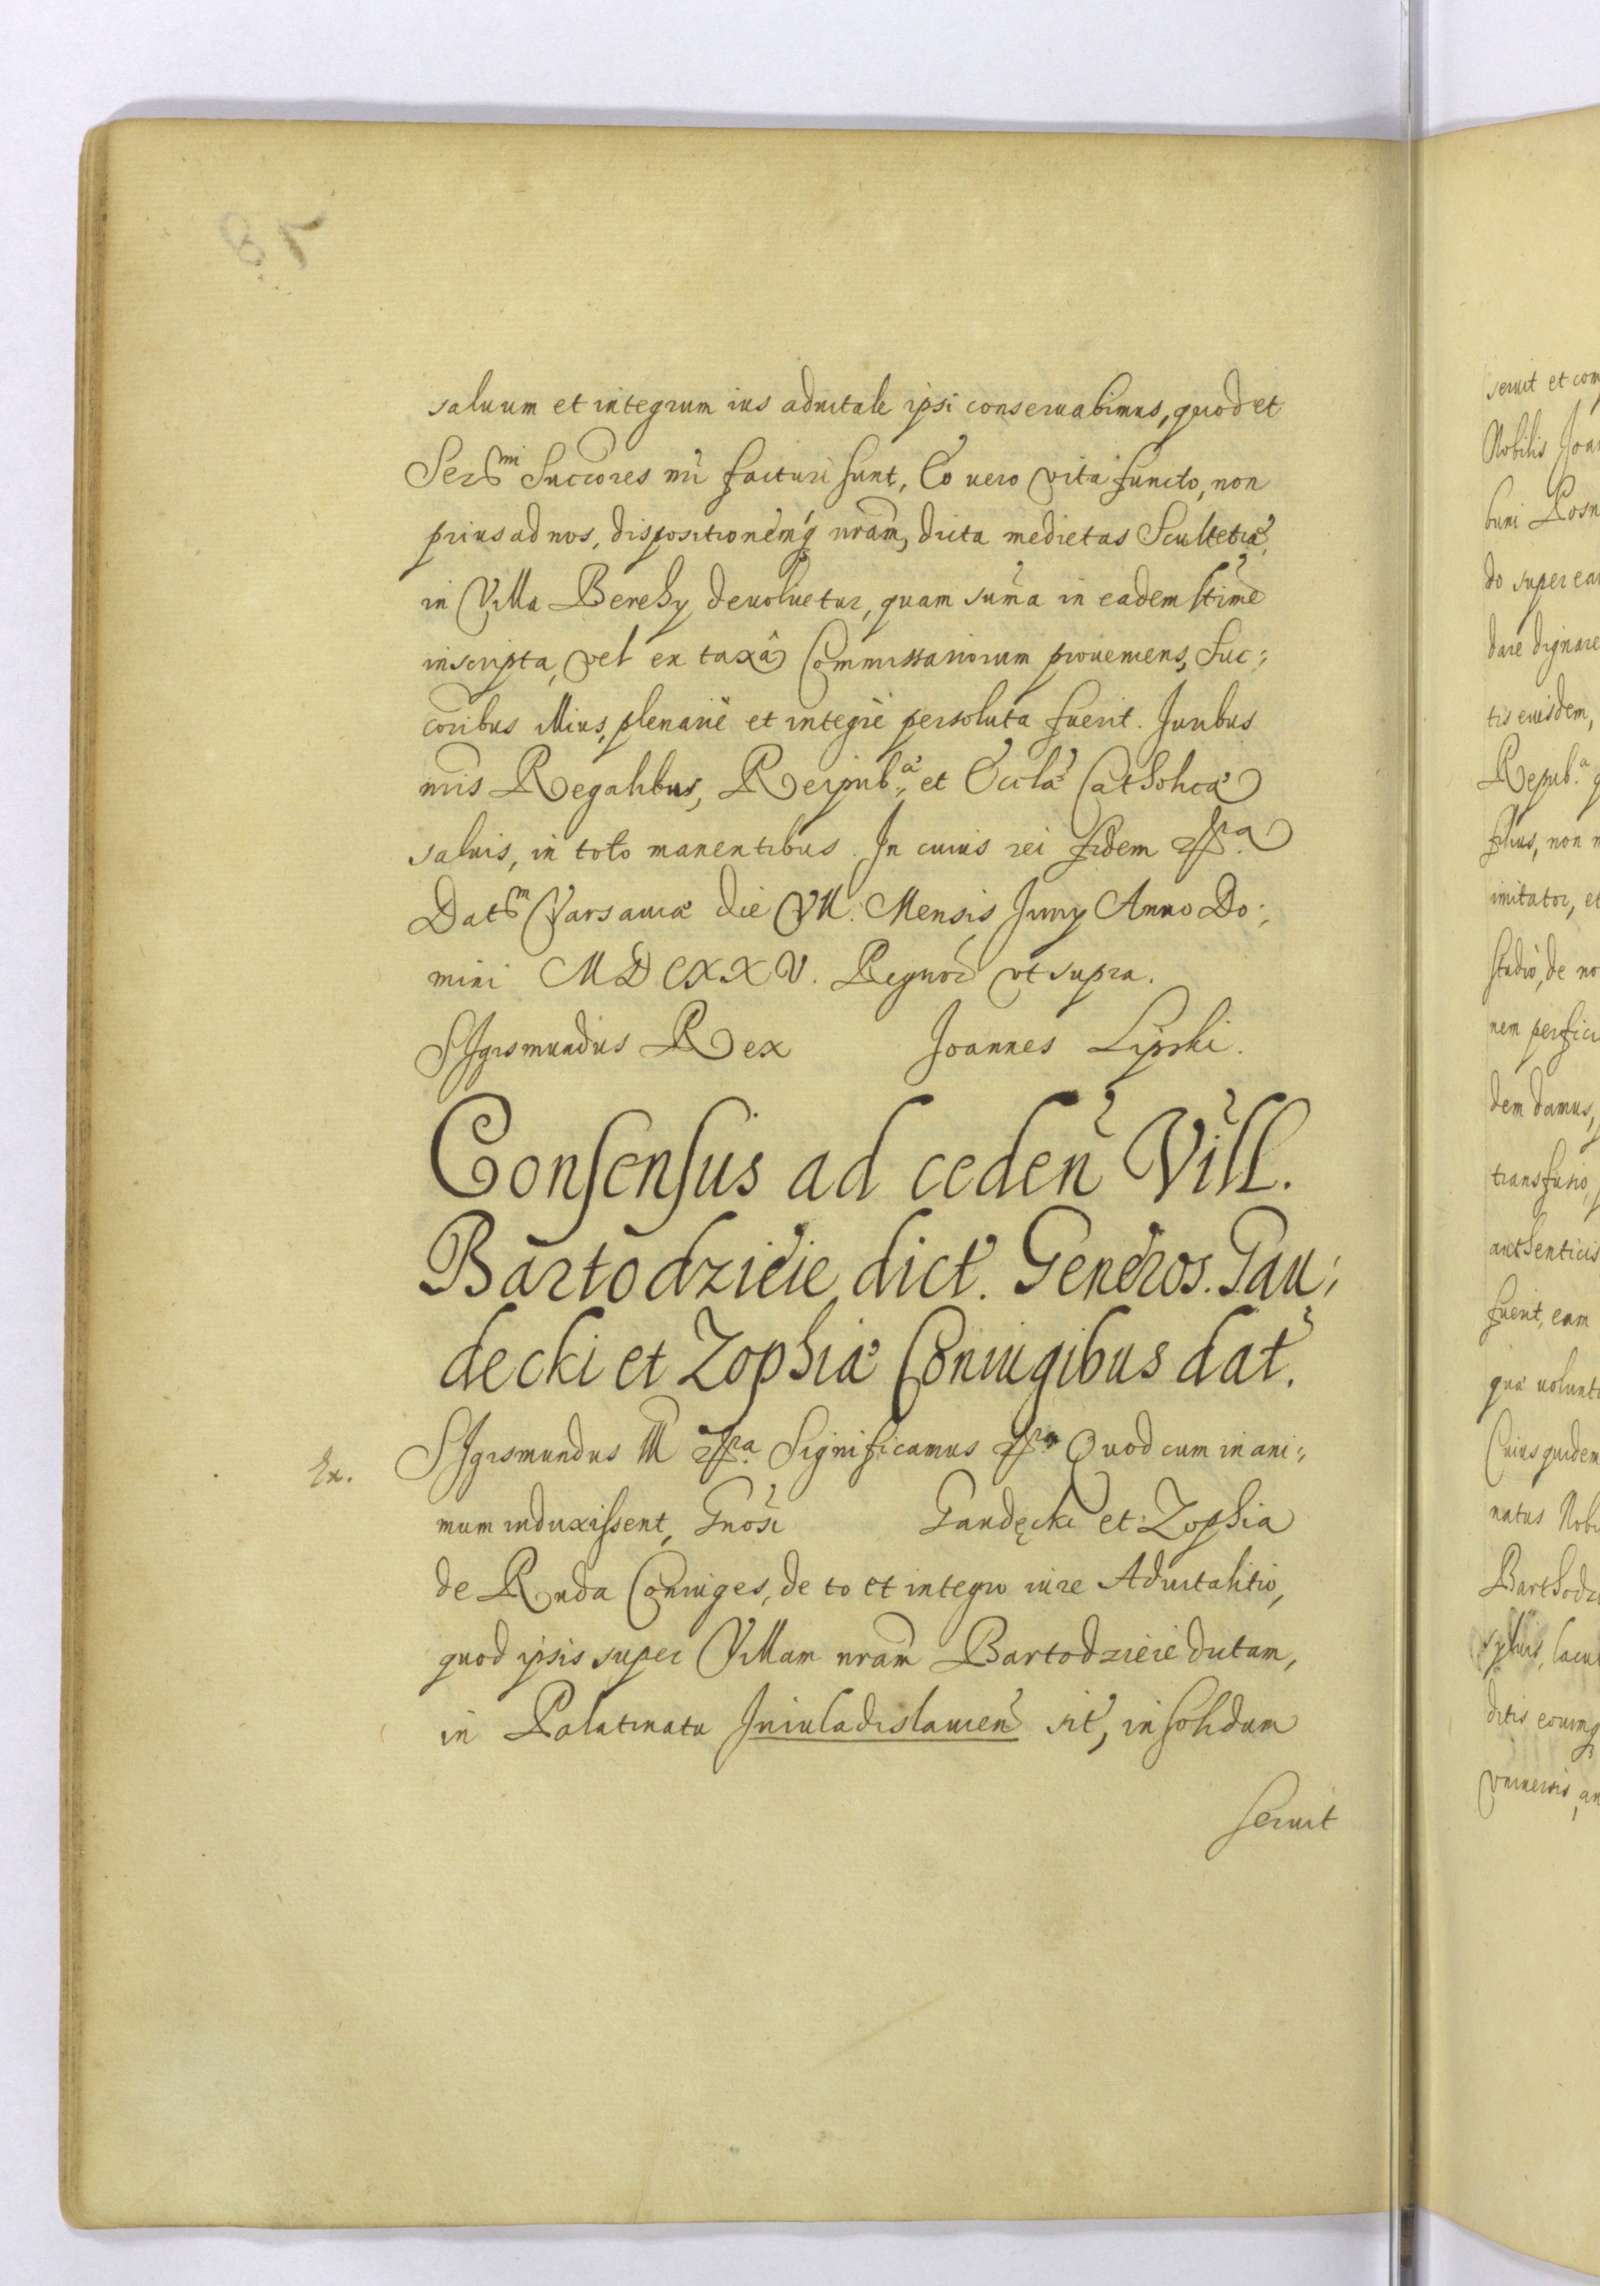 saluum et integrum ius aduitale ipsi conseruabimus, quod et
Sermi Succores nri facturi sunt, Eo uero vita functo, non
prius ad nos, dispositionemq nram, dicta medietas Scultetiæ,
in Villa Berehy deuoluetur, quam suma in eadem
inscripta, vel ex taxâ Commissariorum proueniens, Suc:
coribus illius, plenariè et integrè persoluta fuerit. Juribus
nris Regalibus, Reipub.æ et Eccla Catholicæ
saluis, in toto manentibus. In cuius rei fidem
Datm Varsauiæ die VII. Mensis Juny Anno Do:
mini MDCXXV. Regnor vt supra.
SIgismundus Rex Joannes Lipski.
Consensus ad ceden Vill.
Bartodzieie dict. Generos. Gau:
decki et Zophiæ Coniugibus dat.
Ex. SIgismundus III Significamus Quod cum in ani:
mum induxissent, Gnosi Gandęcki et Zophia
de Ruda Coniuges, de to et integro iure Aduitalitio,
quod ipsis super Villam nram Bartodzieie dictam,
in Palatinatu Iniuladislauien sit, in solidum
seruit
seruit et com
Nobilis Joan
buni Posn
do super ea
dare dignare
tis eiusdem,
Repub.a q
filius, non n
imitator, et
studio, de no
nem perfici
dem damus,
transfusio,
authenticis
fuerit, eam
qua uolunt
Cuius quidem
natus Nobi
Barthodzi
syluis, lacu
ditis eorumq
vniuersis, an